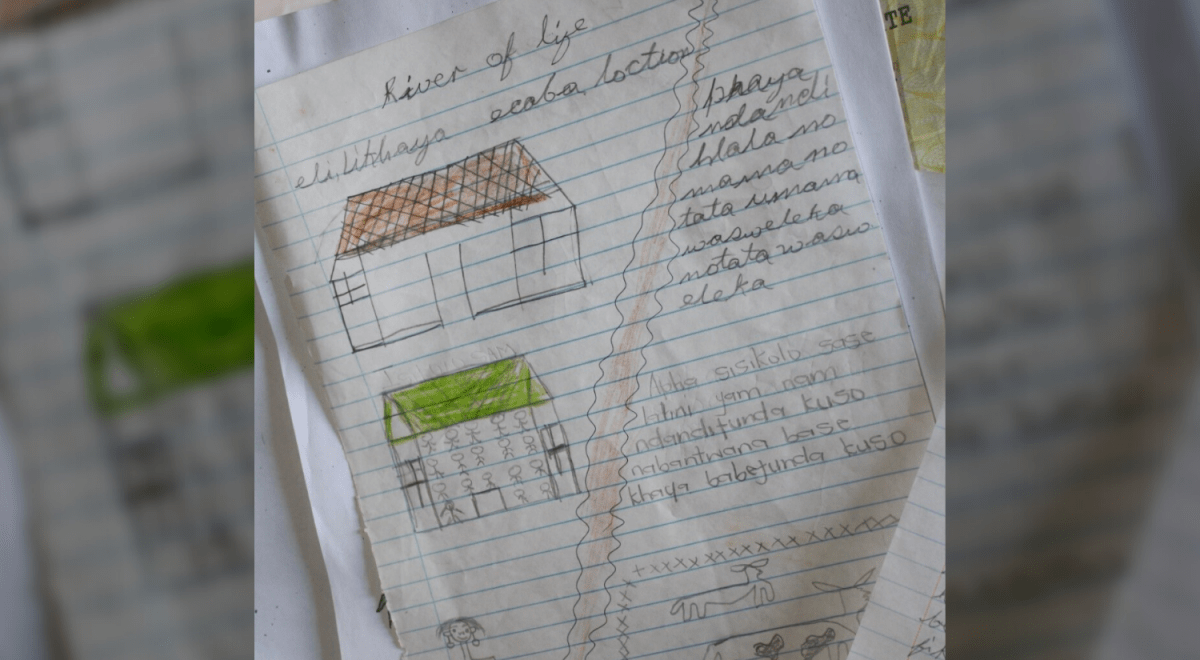 River of life
elilikhaya ecaba loction
phaya
ndandi
hlala no
mama no
tata umama
wasweleka
notata wasw
eleka
sisikolo sase
yam nam
ndandifunda kuso
nabantwana base
khaya babefunda kuso
+xxxxxxxxxxxxxxx
TE